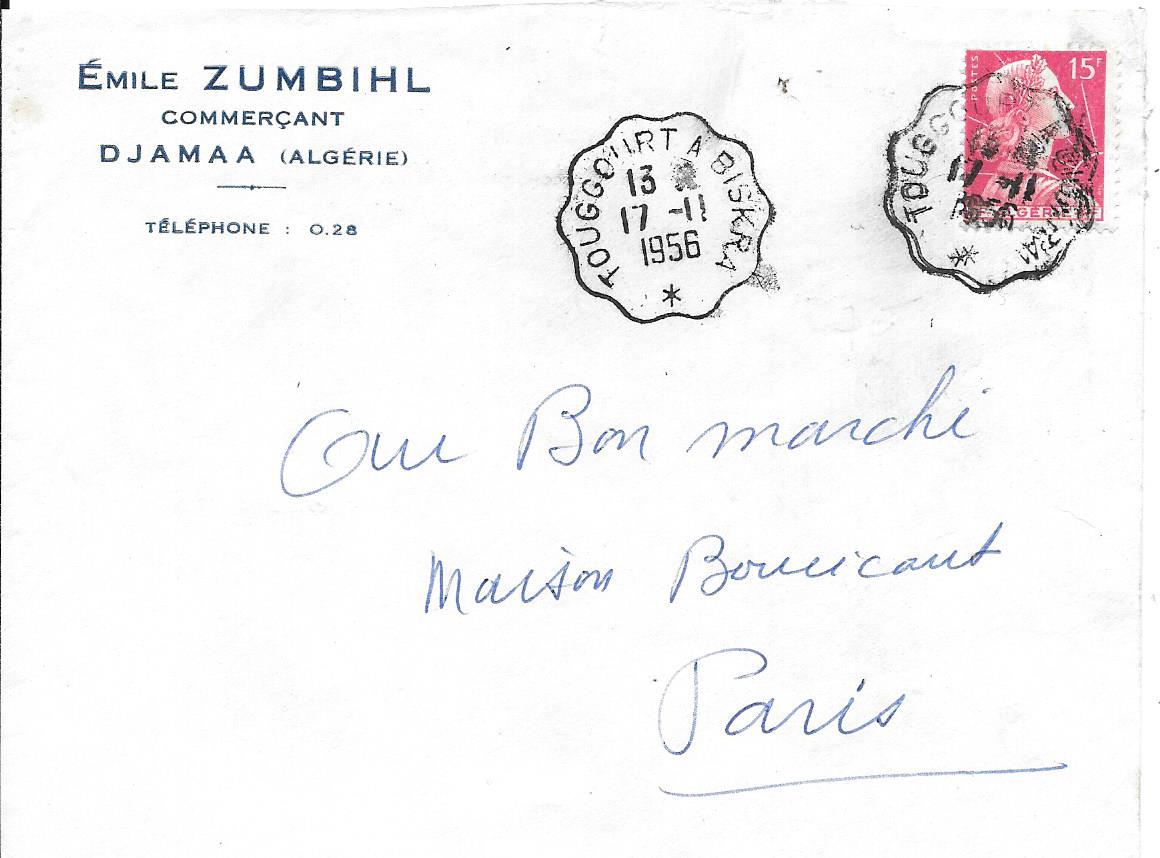 ÉMILE ZUMBIHL
COMMERÇANT
DJAMAA (ALGÉRIE)
TÉLÉPHONE : 0.28
TOUGGOURT A BISKRA
13
17 -11
1956
*
POSTES
15F
ALGÉRIE
TOUGGOURT
17 -11
1956
Au Bon marché
Maison Boucicaut
Paris